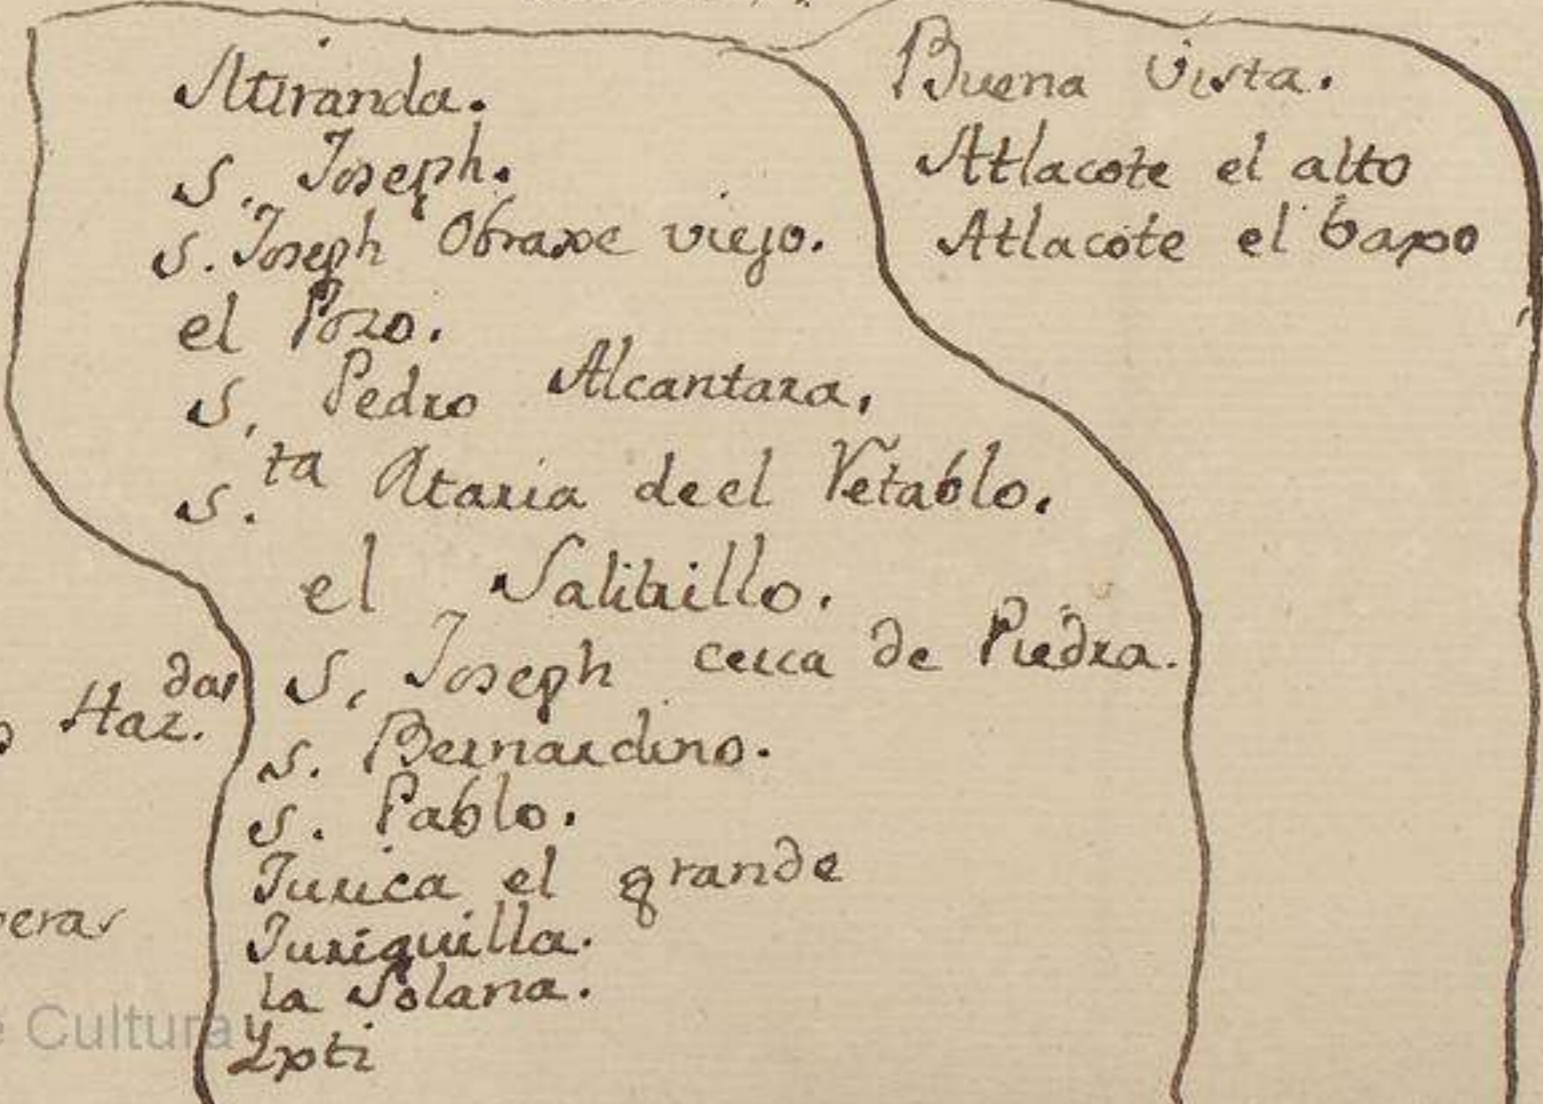 Miranda.
S. Joseph.
S. Joseph Obraxe viejo.
el Pozo.
S. Pedro Alcantara,
S.ta Maria deel Retablo.
el Salitrillo.
S. Joseph cerca de Piedra.
S. Bernardino.
S. Pablo.
Jurica el grande
Juriquilla.
la Solana.
Yxti
Buena Vista.
Atlacote el alto
Atlacote el baxo
Haz.das
peras
e Cultura